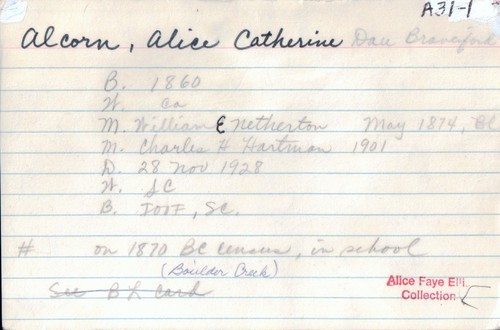 A31-1
Alcorn, Alice Catherine Dau Branciford
B. 1860
W. Ca
M. William E Netherton May 1874,
M. Charles H Hartman 1901
D. 28 Nov 1928
W. SC
B. IOOF, SC.
# on 1870 BC census, in school
(Boulder Creek)
See B L Card
Alice Faye Elli
Collection